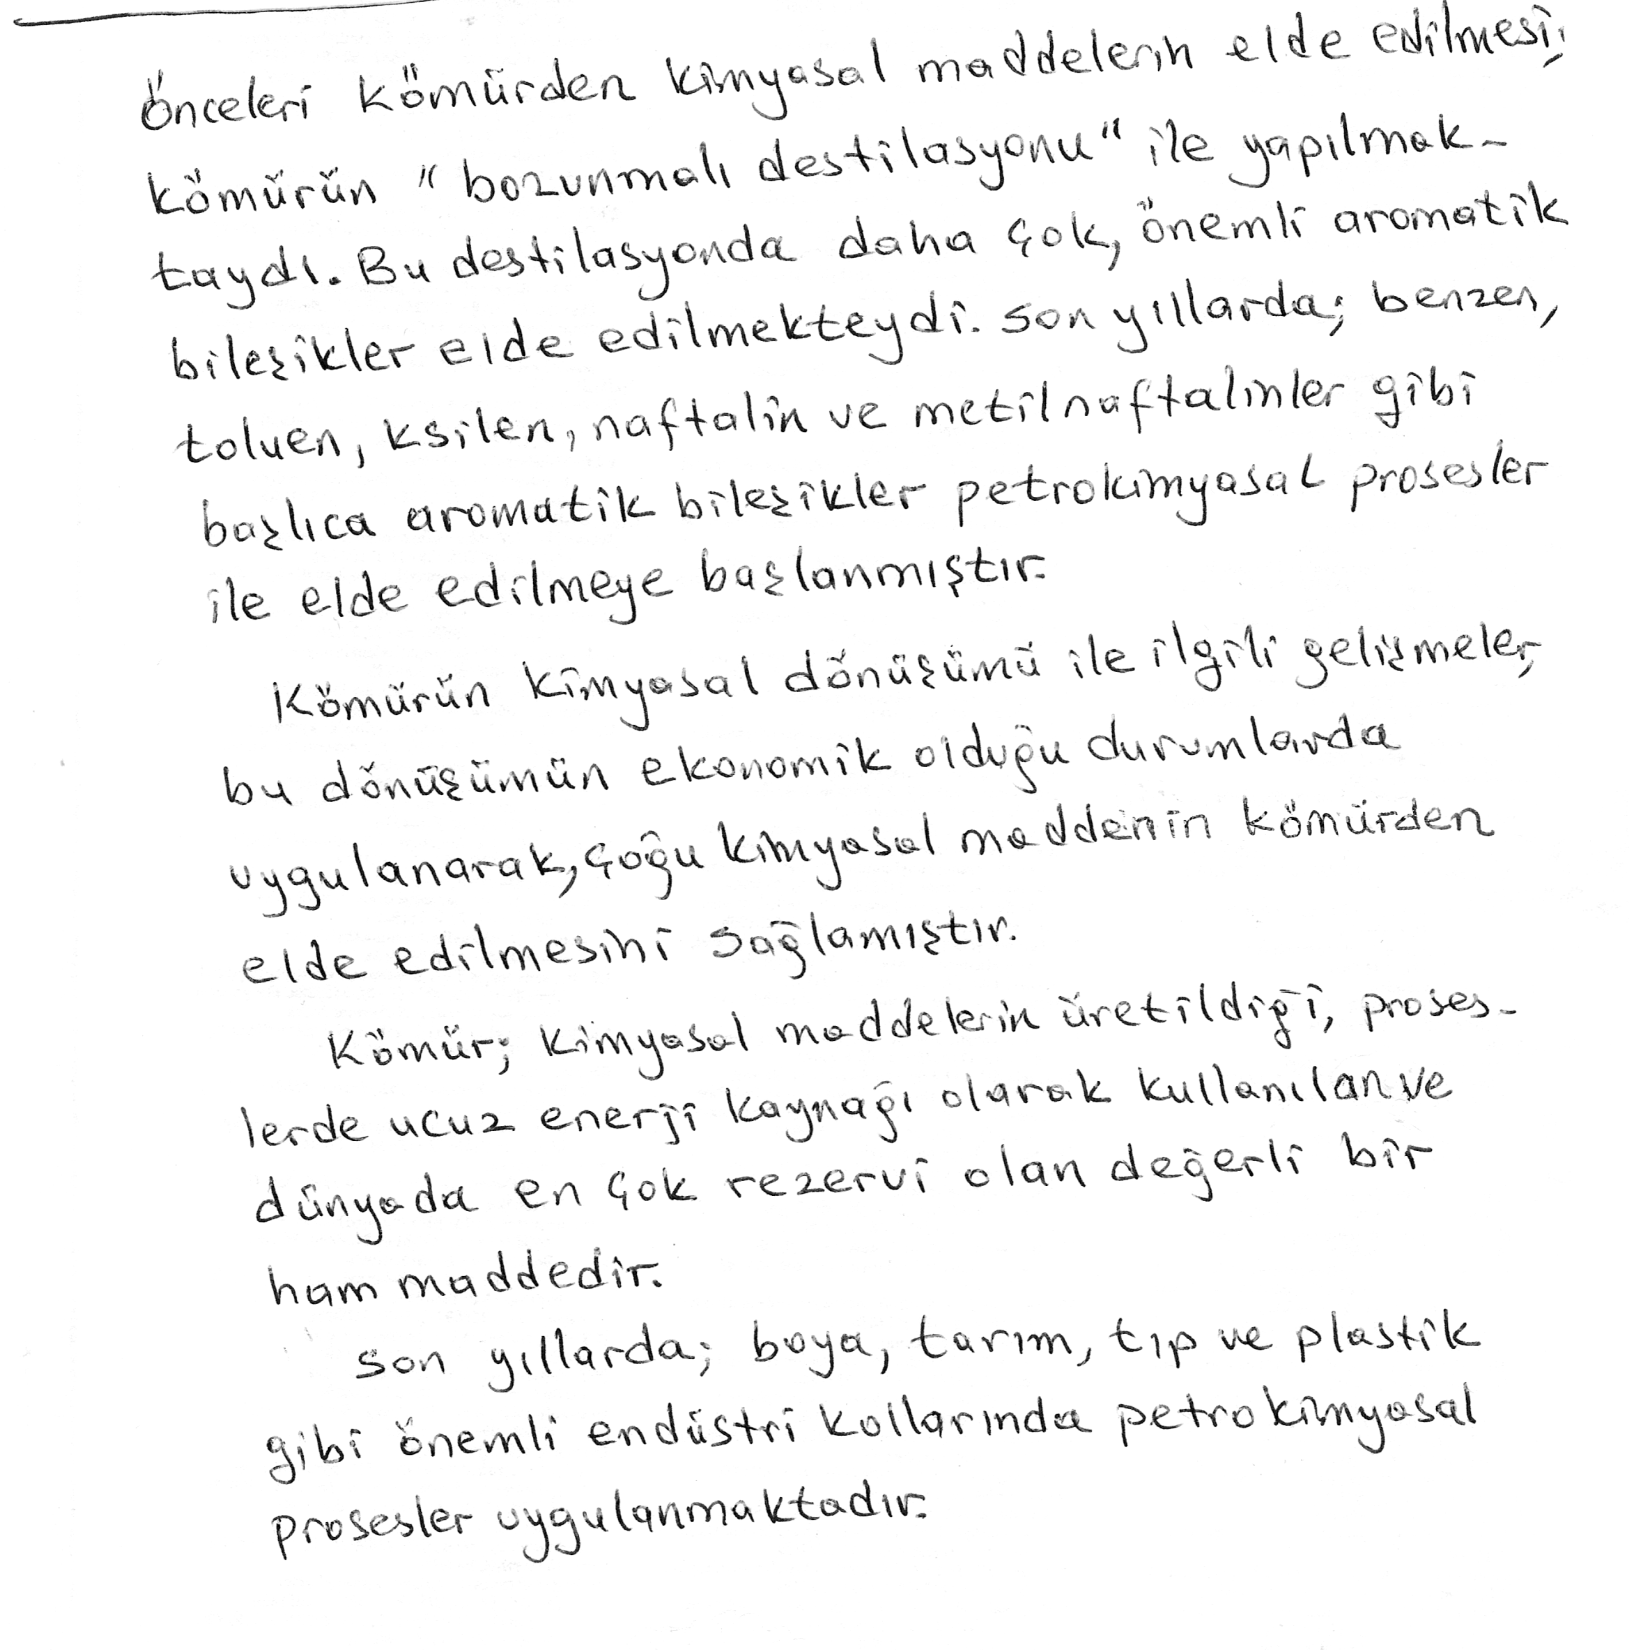 Önceleri kömürden kimyasal maddelerin elde edilmesi;
kömürün "bozunmalı destilasyonu" ile yapılmak-
taydı. Bu destilasyonda daha çok, önemli aromatik
bileşikler elde edilmekteydi. Son yıllarda; benzen,
toluen, ksilen, naftalin ve metilnaftalinler gibi
başlıca aromatik bileşikler petrokimyasal prosesler
ile elde edilmeye başlanmıştır.
Kömürün kimyasal dönüşümü ile ilgili gelişmeler,
bu dönüşümün ekonomik olduğu durumlarda
uygulanarak, çoğu kimyasal maddenin kömürden
elde edilmesini sağlamıştır.
Kömür; kimyasal maddelerin üretildiği, proses-
lerde ucuz enerji kaynağı olarak kullanılan ve
dünyada en çok rezervi olan değerli bir
ham maddedir.
Son yıllarda; boya, tarım, tıp ve plastik
gibi önemli endüstri kollarında petrokimyasal
prosesler uygulanmaktadır.